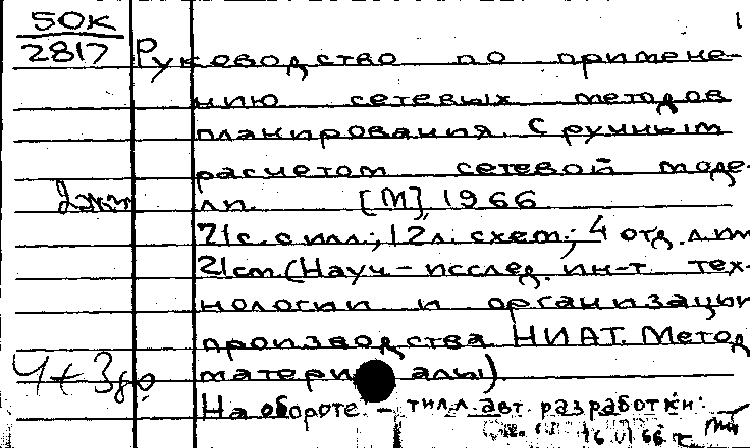 50К
2817
1
Руководство по примене-
нию сетевых методов
планирования. С ручным
расчетом сетевой моде-
ли. [М], 1966
2 экз
71с. с илл.; 12л. схем; 4 отд. л. ил
21см. (Науч-исслед. ин-т тех-
нологии и организации
производства НИАТ. Метод
матери алы)
4+3
На обороте - тил.л. авт. разработки:
16 VI 66 г